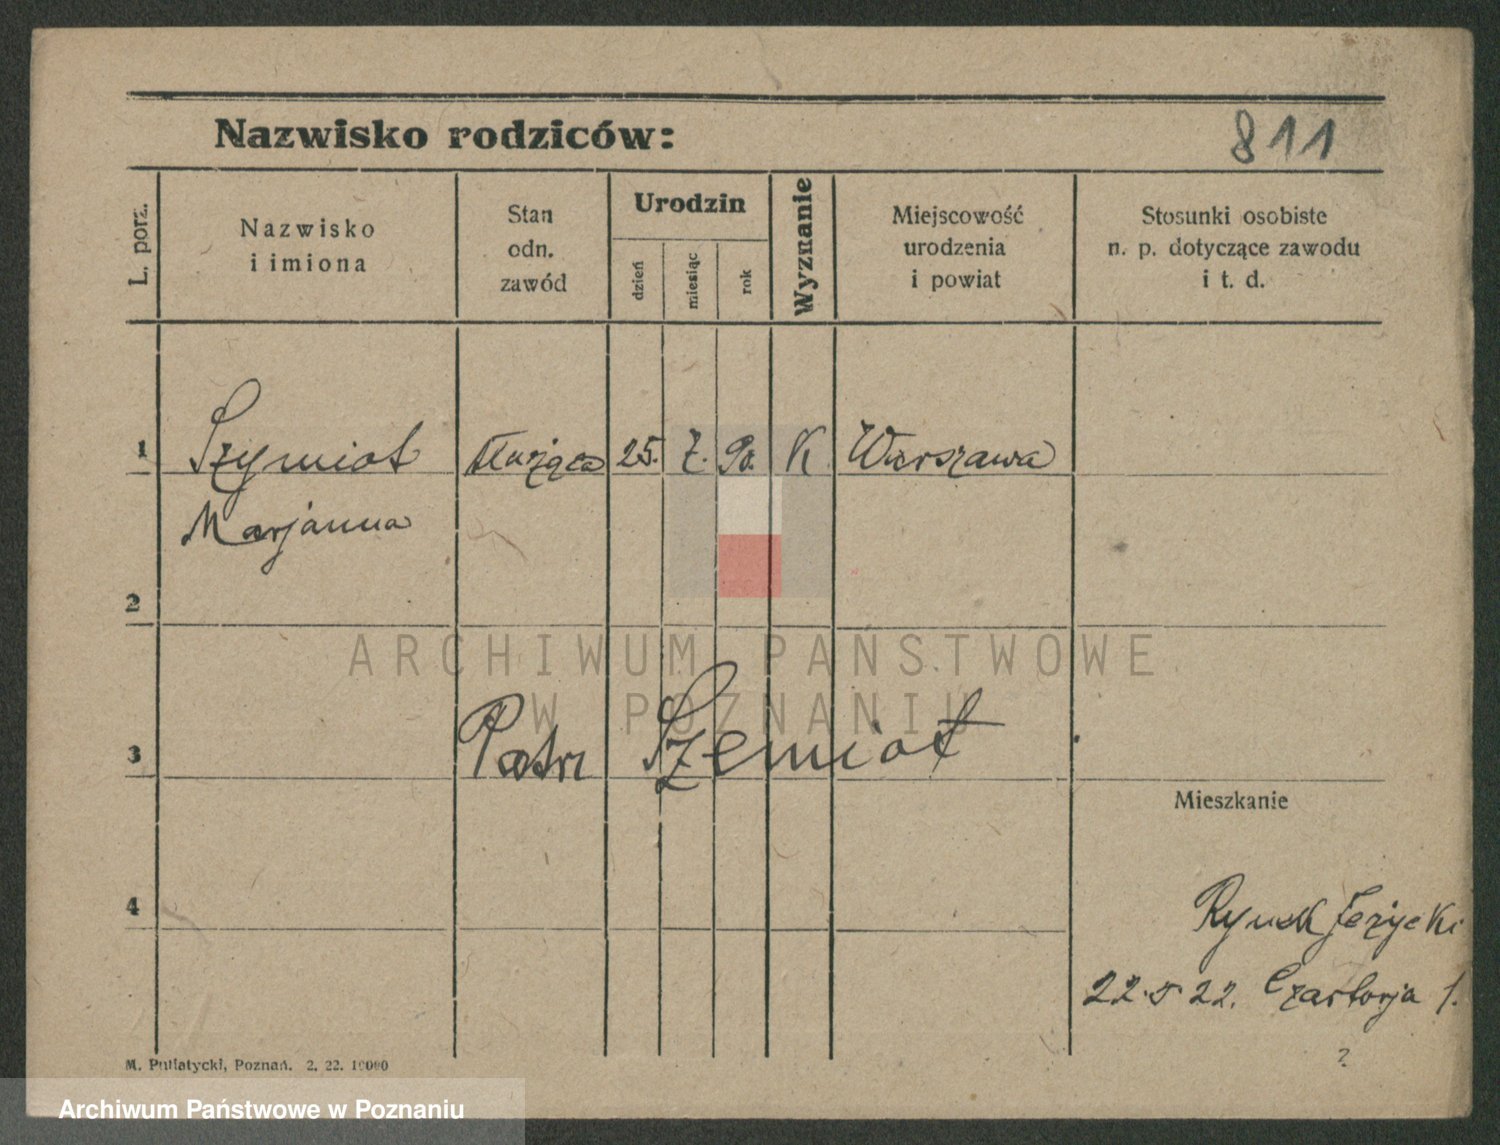 Nazwisko rodziców:
811
L. porz.
Nazwisko
i imiona
Stan
odn.
zawód
Urodzin
dzień
miesiąc
rok
Wyznanie
Miejscowość
urodzenia
i powiat
Stosunki osobiste
n. p. dotyczące zawodu
i t. d.
1 Szymiot służąca 25. 7. 90. K Warszawa
Marjanna
2
ARCHIWUM PAŃSTWOWE
W POZNANIU
3 Patrz Szemiot
Mieszkanie
4
Rynek Jeżycki
22.5.22. Czartorja 1.
?
M. Putiatycki, Poznań. 2. 22. 10000
Archiwum Państwowe w Poznaniu